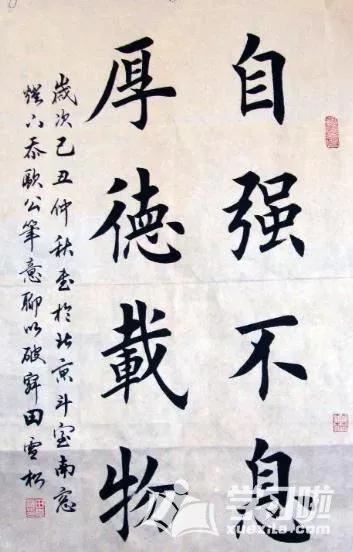 自强不息
厚德載物
歲次己丑仲秋书於北京斗室南窓
燈下忝歐公筆意聊以破寂田雪松
学习啦
xuexila.com